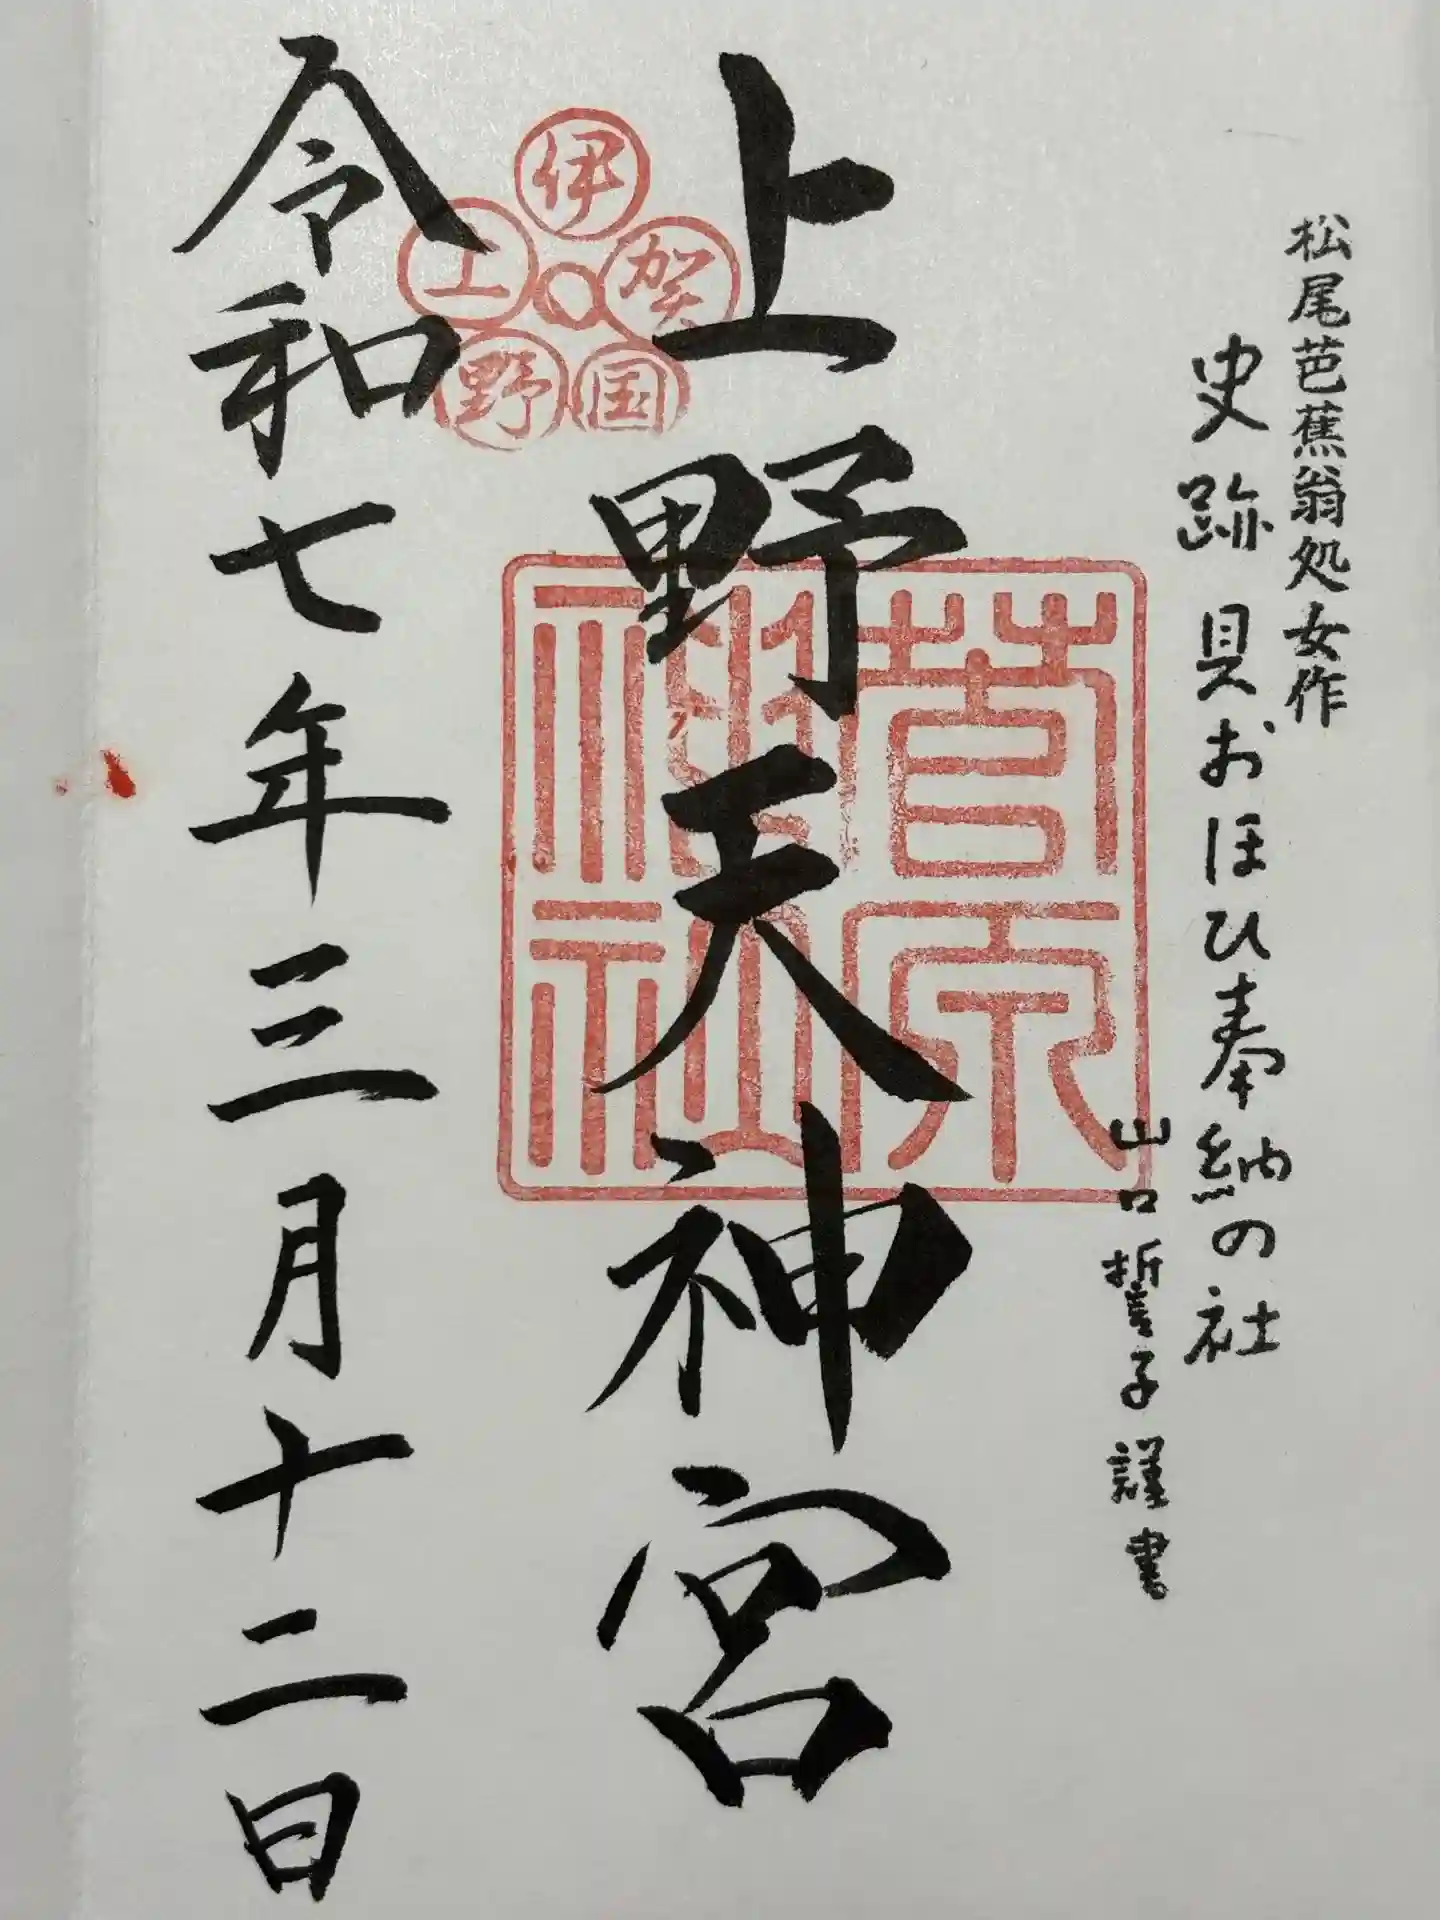 松尾芭蕉翁処女作
史跡 貝おほひ奉納の社
山口誓子謹書
上野天神宮
伊賀国野上
菅原神社
令和七年三月十二日